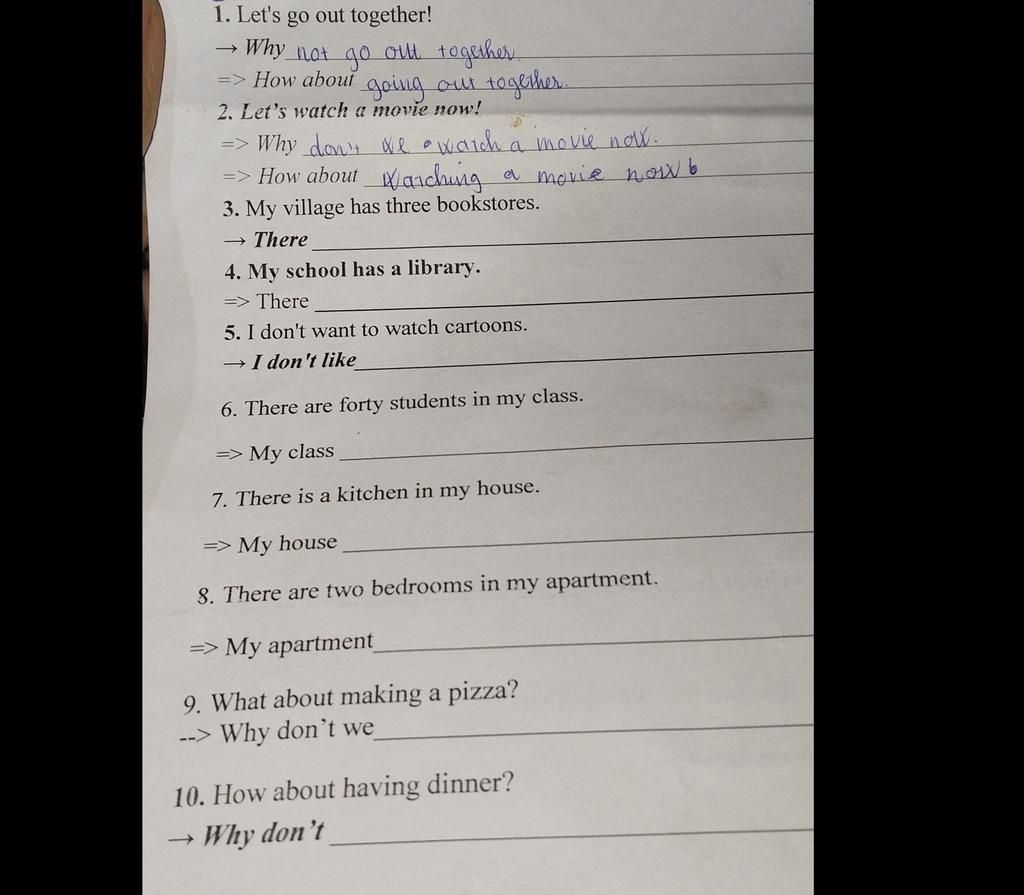 1. Let's go out together!
→ Why not go out together.
=> How about going out together.
2. Let's watch a movie now!
=> Why don't we watch a movie now.
=> How about watching a movie now
3. My village has three bookstores.
→ There
4. My school has a library.
=> There
5. I don't want to watch cartoons.
→ I don't like
6. There are forty students in my class.
=> My class
7. There is a kitchen in my house.
=> My house
8. There are two bedrooms in my apartment.
=> My apartment
9. What about making a pizza?
--> Why don't we
10. How about having dinner?
→ Why don't